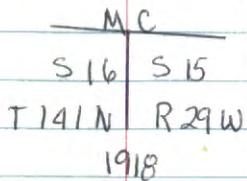 M C
S 16 S 15
T 141 N R 29 W
1918